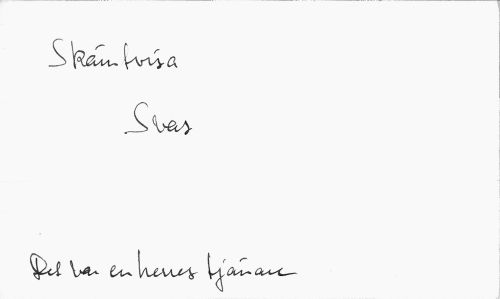 Skämtvisa
Svas
Det var en herres tjänare